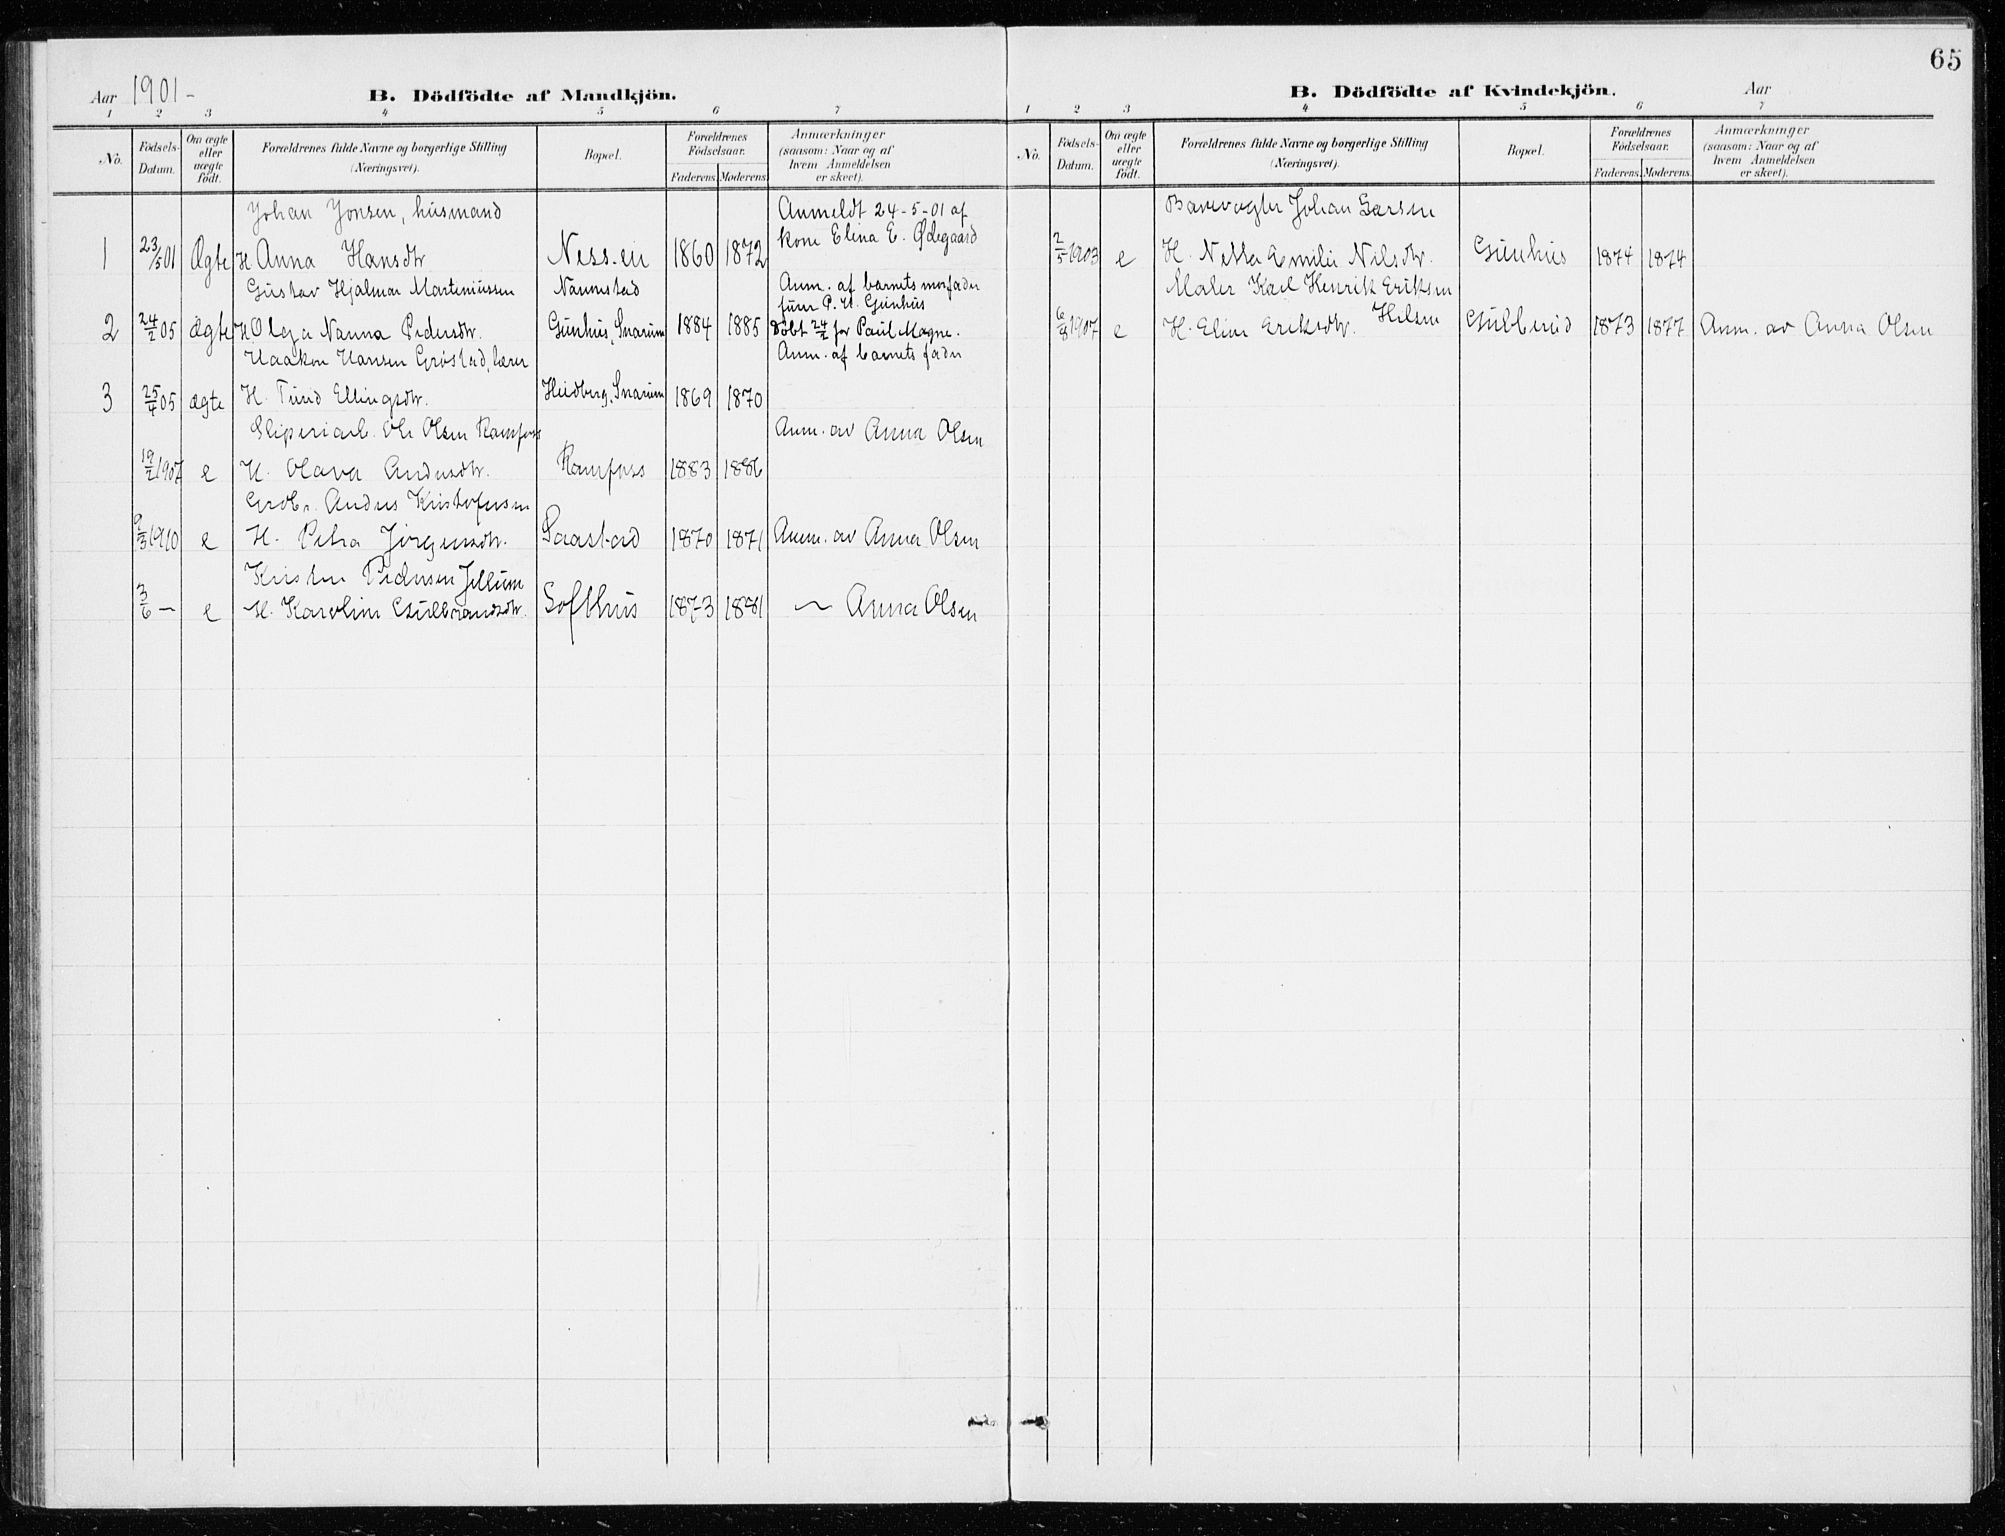 65
Aar 1901-
B. Dödfödte af Mandkjön.
1 2 3 4 5 6 7
No. Födsels-Datum. Om ægte eller uægte födt. Forældrenes fulde Navne og borgerlige Stilling (Næringsvei). Bopæl. Forældrenes Födselsaar. Faderens. Moderens. Anmærkninger (saasom: Naar og af hvem Anmeldelsen er skeet).
Johan Jonsen, husmand Anmeldt 24-5-01 af
1 23/5 01 Ægte H Anna Hansdtr Ness-ei 1860 1872 kone Elina E. Ødegaard
Gustav Hjalmar Marteniussen Nannestad Anm. af barnets morfader
furer P. H. Gunhus
2 24/2 05 ægte H Olga Nanna Pedersdtr. Gunhus, Snarum 1884 1885 Döbt 24/2 for Paul Magne.
Haakon Hansen Grøstad, lærer Anm. af barnets fader
3 25/4 05 ægte H. Turid Ellingsdtr. Heidberg, Snarum 1869 1870
Sliperiarb. Ole Olsen Ramfoss Anm. av Anna Olsen
19/2 1907 e H. Olava Andersdtr. Ramfoss 1883 1886
Grdbr. Anders Kristofersen
9/3 1910 e H. Petra Jørgensdtr. Saastad 1870 1871 Anm. av Anna Olsen
Kristen Pedersen Jellum
3/6 — e H. Karoline Gulbrandsdtr. Softhus 1873 1881 ~ Anna Olsen
B. Dödfödte af Kvindekjön.
Aar
1 2 3 4 5 6 7
No. Födsels-Datum. Om ægte eller uægte födt. Forældrenes fulde Navne og borgerlige Stilling (Næringsvei). Bopæl. Forældrenes Födselsaar. Faderens. Moderens. Anmærkninger (saasom: Naar og af hvem Anmeldelsen er skeet).
Banevogter Johan Larsen
2/5 1903 e H. Netta Emilie Nilsdtr. Gunhus 1874 1874
Maler Karl Henrik Eriksen
Hilsen
6/8 1907 e H. Eline Eriksdtr. Gulbrud 1873 1877 Anm. av Anna Olsen